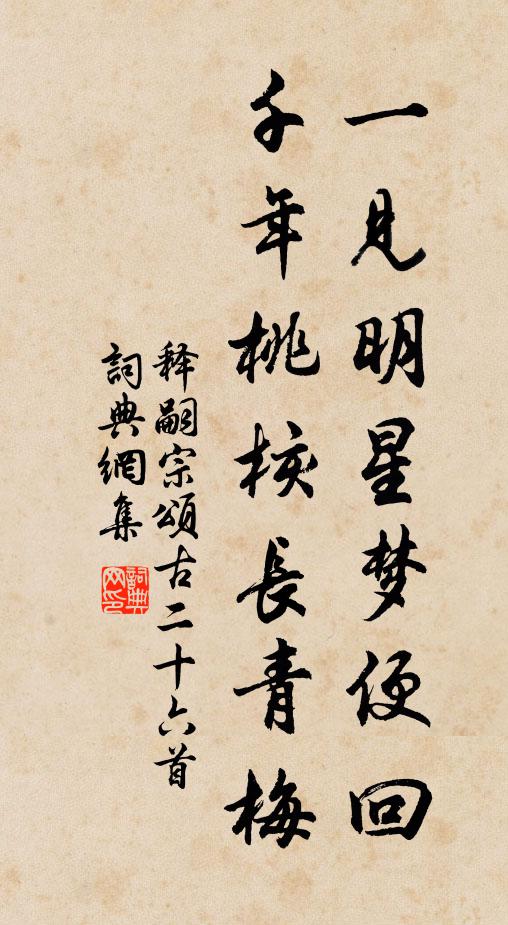 一见明星梦便回
千年桃核長青梅
释嗣宗頌古二十六首
詞典網集
詞典网印